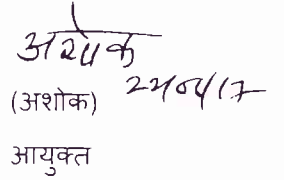 अशोक
22/04/17
(अशोक)
आयुक्त